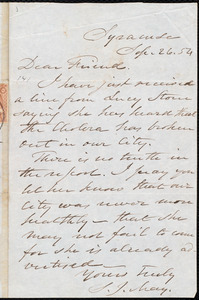 Syracuse
Sep. 26. 54
Dear Friend.
I have just received
a line from Lucy Stone
saying she has heard that
the Cholera has broken
out in our City.
There is no truth in
the report. I pray you
let her know that our
City was never more
healthy — that she
may not fail to come
for she is already ad
vertised —
Yours truly
S. J. May.